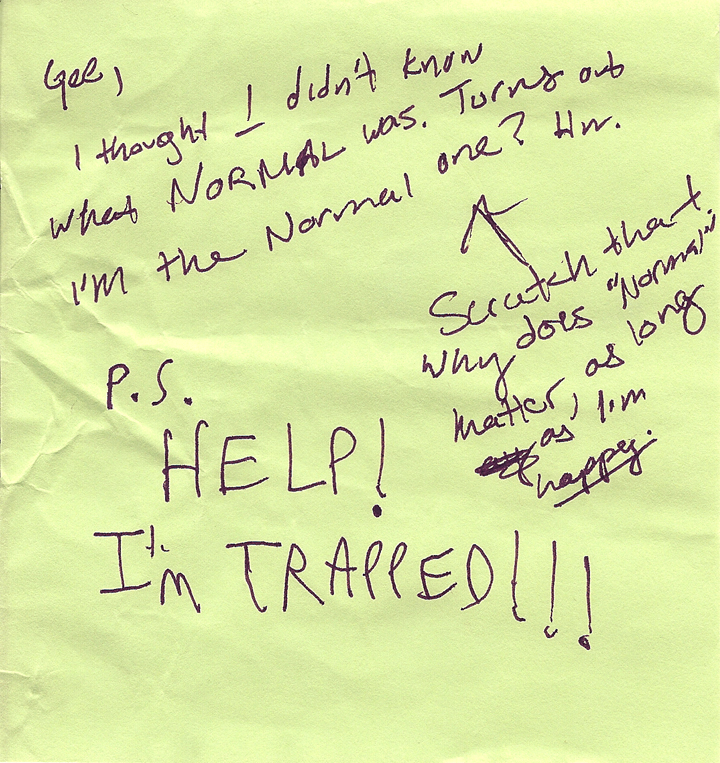 Gee,
I thought I didn't know
what NORMAL was. Turns out
I'm the Normal one? Hm.
Scratch that.
Why does "Normal"
matter, as long
as I'm
happy.
P.S.
HELP!
I'm TRAPPED!!!